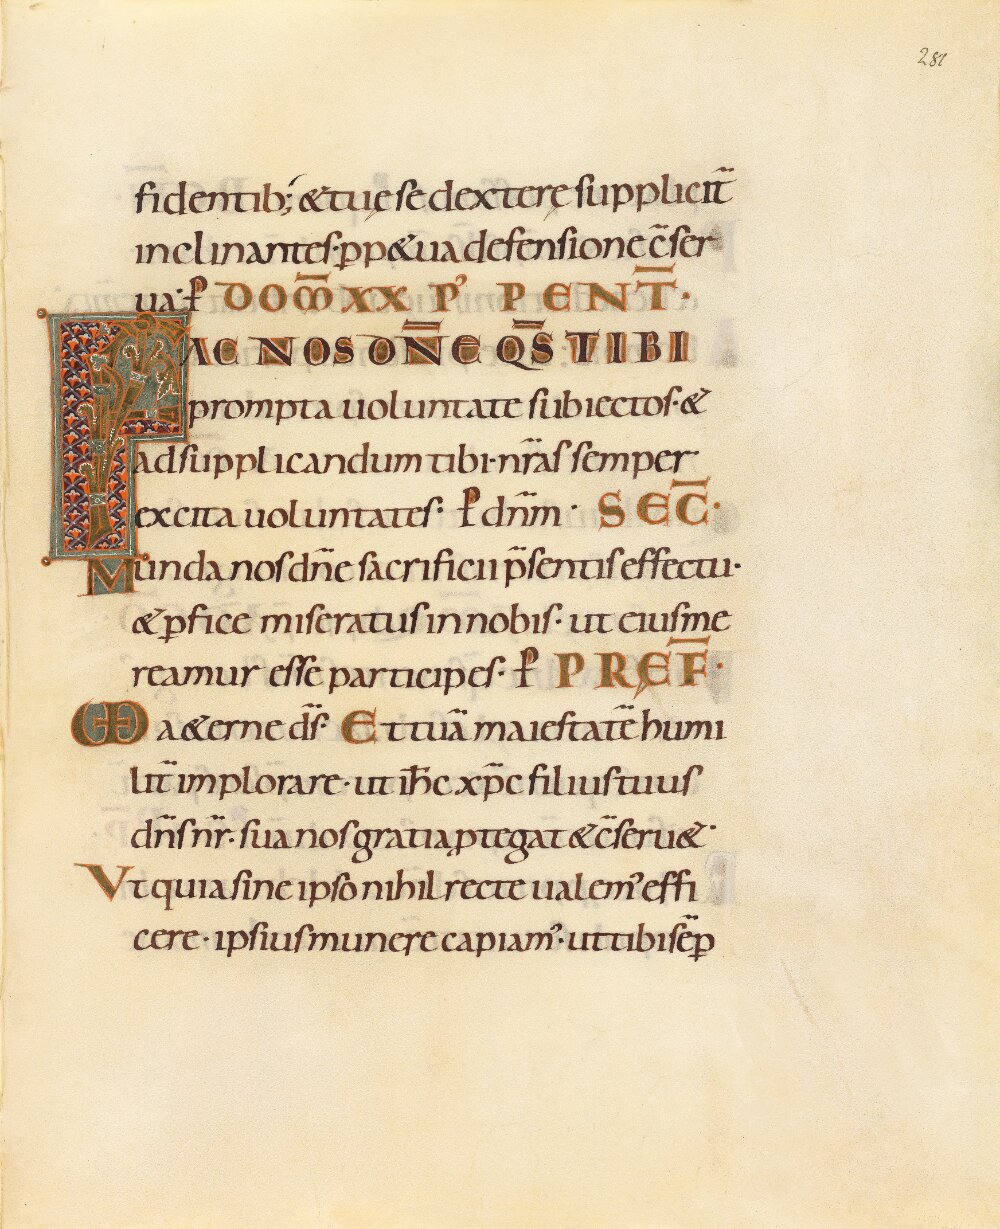 281
fidentib; &tuę se dexterę supplicit̄
inclinantes· pp&ua defensione c̄ser
ua· ꝑ DOM̄ XX P' PENT̄·
FAC NOS DN̄E QS̄ TIBI
prompta uoluntate subiectos· &
ad supplicandum tibi· nr̄as semper
excita uoluntates· ꝑ dn̄m· SEC̄·
Munda nos dn̄e sacrificii p̄sentis effectu·
&ꝑfice miseratus in nobis· ut eius me
reamur esse participes· ꝑ PREF̄·
VD Ma &erne ds̄· Et tuā maiestatē humi
lit̄ implorare· ut ih̄c xp̄c filius tuus
dn̄s nr̄· sua nos gratia ꝓtegat &c̄seru&·
Vt quia sine ipso nihil recte ualem' effi
cere· ipsius munere capiam'· ut tibi sēꝑ